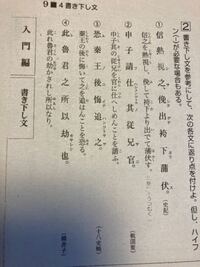 9 ■ 4 書き下し文
2 書き下し文を参考にして、次の各文に返り点を付けよ。但し、ハイフ
ン(-)が必要な場合もある。
① 信熟視之、俛出袴下蒲伏。(史記)
信之を熟視し、俛して袴下より出でて蒲伏す。
② 申子請仕其従兄官。(戦国策)
申子其の従兄を官に仕へしめんことを請ふ。
③ 恐秦王後悔追之。(十八史略)
秦王の後に悔いて之を追はんことを恐る。
④ 此魯君之所以劫也。(韓非子)
此れ魯君の劫かされし所以なり。
入門編 書き下し文